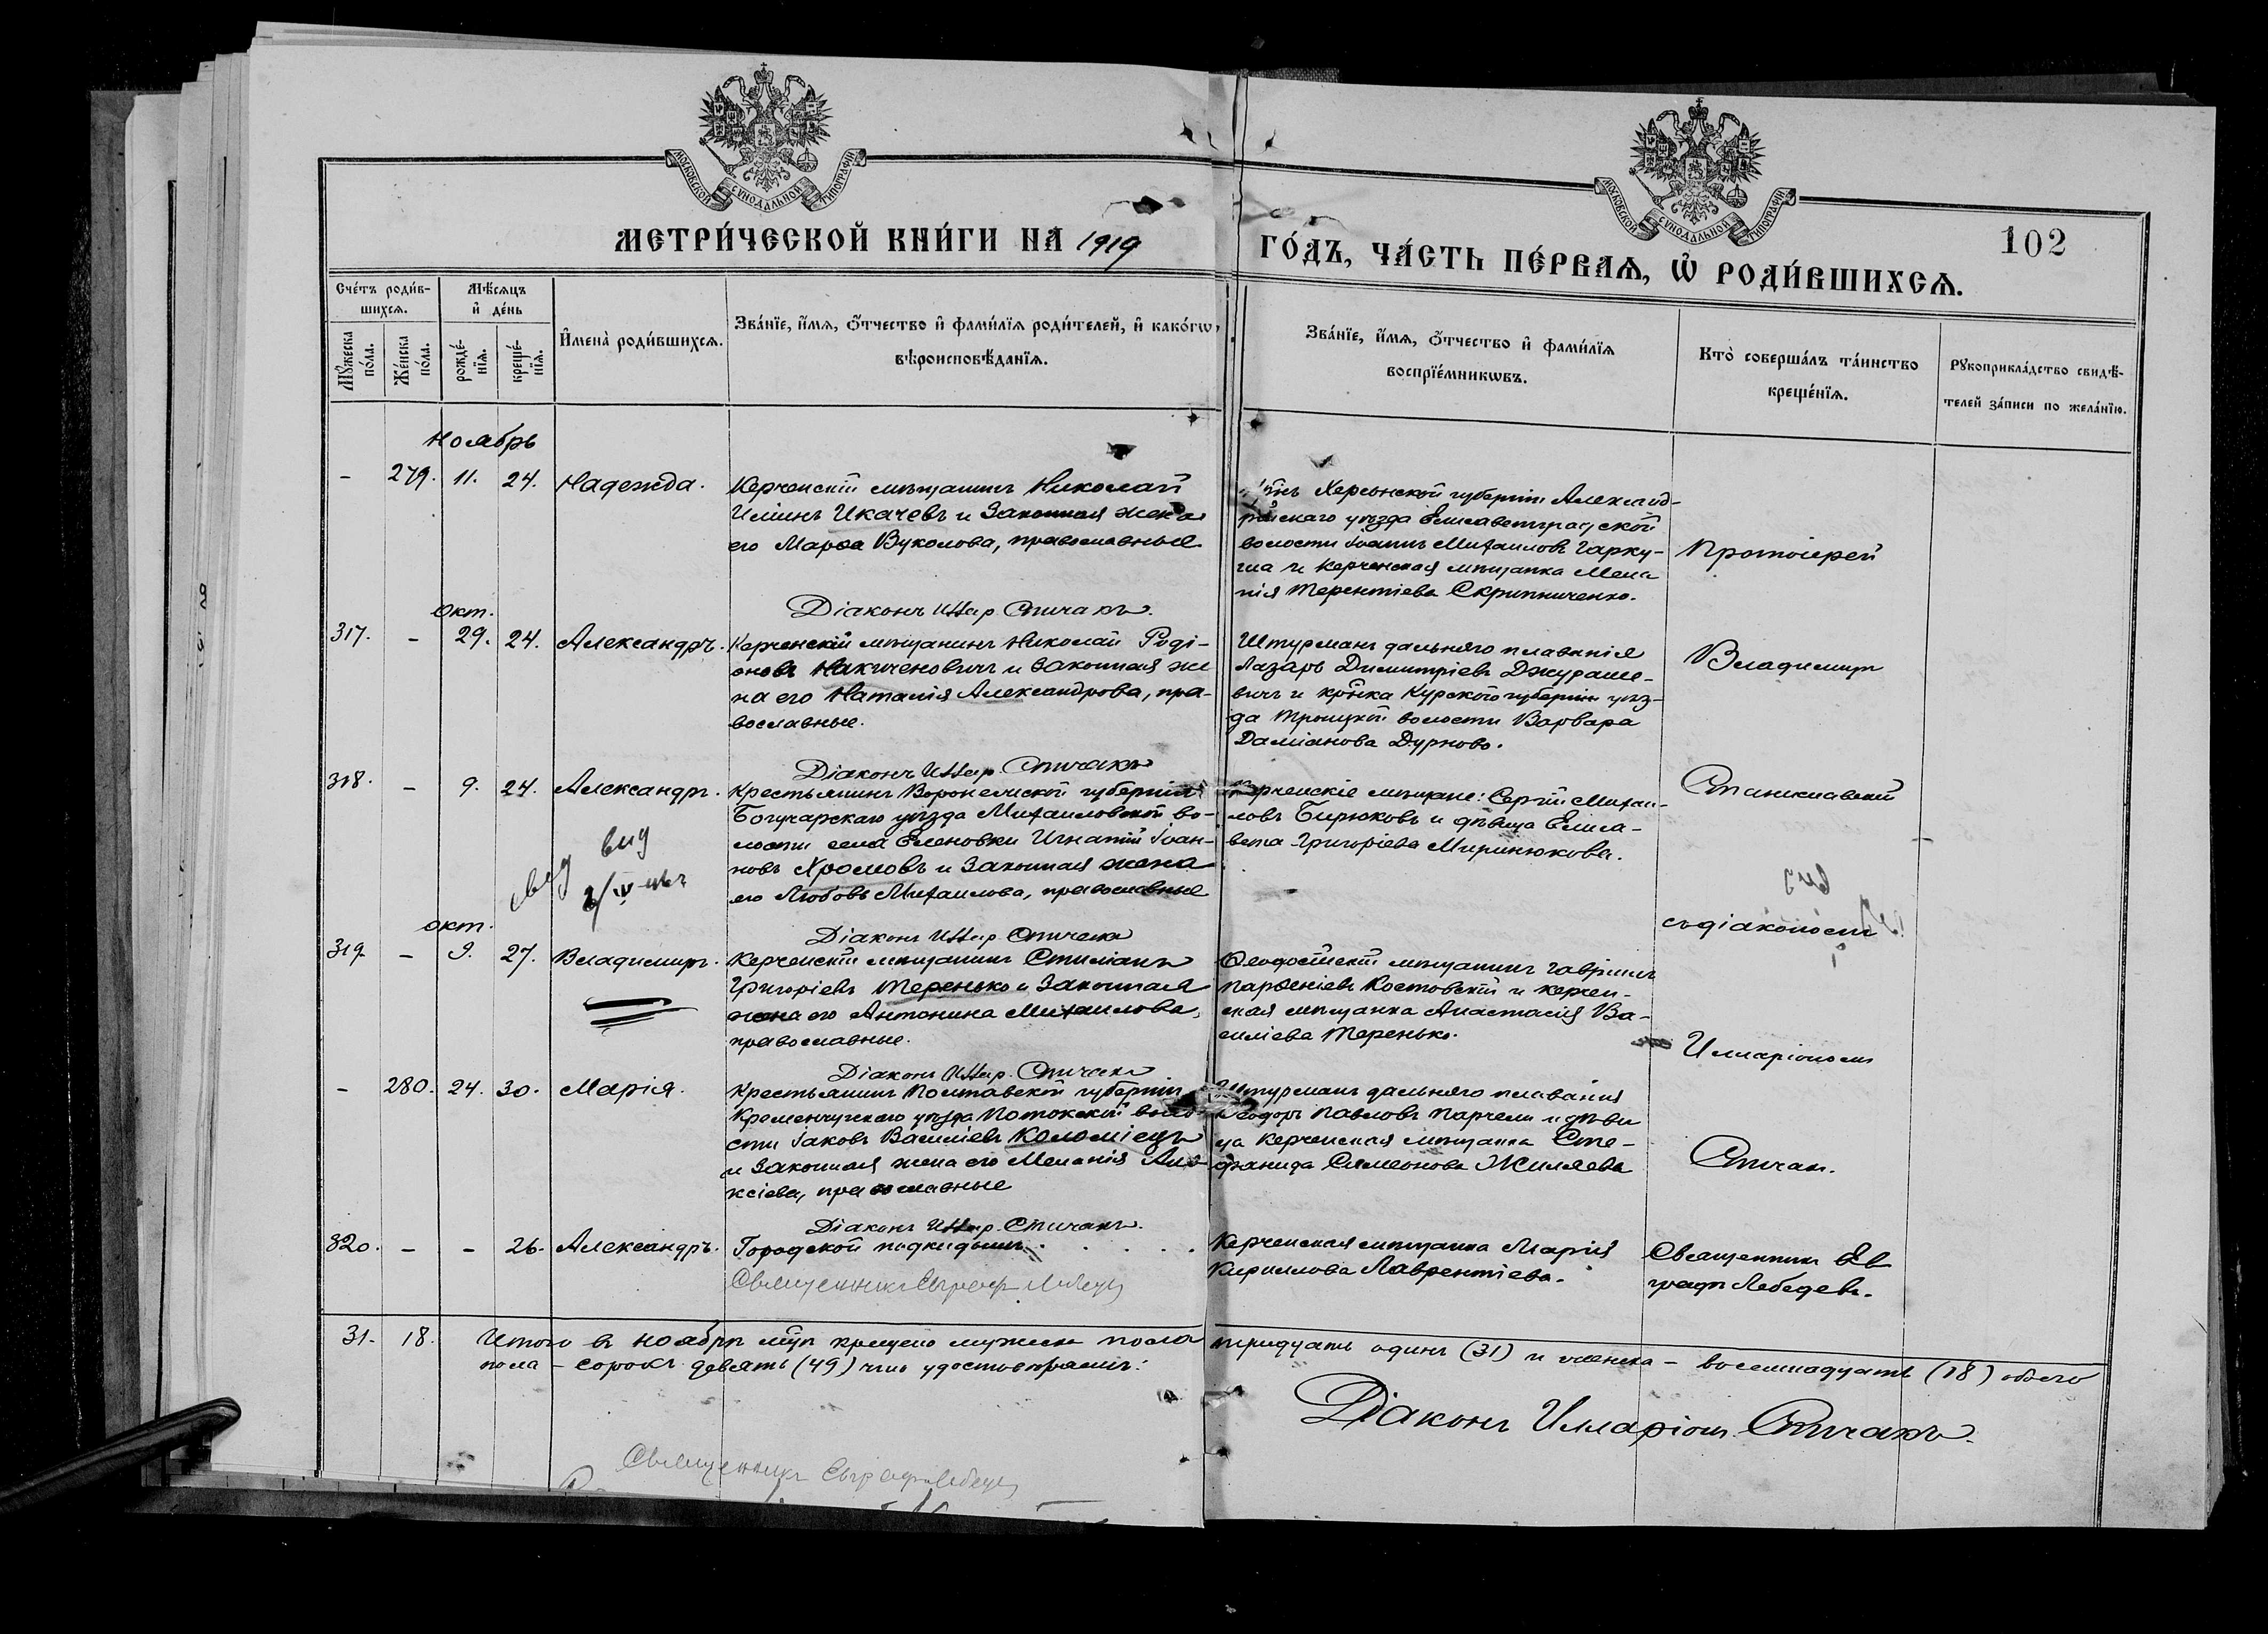 МОСКОВСКОЙ СѴНОДАЛЬНОЙ ТИПОГРАФІИ
МОСКОВСКОЙ СѴНОДАЛЬНОЙ ТИПОГРАФІИ
МЕТРИ́ЧЕСКОЙ КНИ́ГИ НА 1919
ГО́ДЪ, ЧА́СТЬ ПЕ́РВАѦ, Ѽ РОДИ́ВШИХСѦ.
102
Сче́тъ роди́в-
шихсѧ.
Мѣ́сѧцъ
и҆ де́нь
Мꙋ́жеска
по́ла.
Же́нска
по́ла.
рожде́-
нїѧ.
креще́-
нїѧ.
И҆мена̀ роди́вшихсѧ.
Зва́нїе, и҆́мѧ, ѻ҆́тчество и҆ фами́лїѧ роди́телей, и҆ како́гѡ
вѣроисповѣ́данїѧ.
Зва́нїе, и҆́мѧ, ѻ҆́тчество и҆ фами́лїѧ
воспрїе́мникѡвъ.
Кто̀ соверша́лъ та́инство
креще́нїѧ.
Рꙋкоприкла́дство свидѣ́-
телей за́писи по жела́нїю.
Ноябрь
- 279. 11. 24. Надежда.
Керченскій мѣщанинъ Николай
Иліинъ Икачевъ и законная жена
его Марѳа Вуколова, православные
Херсонской губерніи Александ-
рійскаго уѣзда Елисаветградской
волости Іоаннъ Михаиловъ Гарку-
ша и керченская мѣщанка Мела
нія Терентіева Скрипниченко.
Протоіерей
Діаконъ Иллар. Спичакъ.
Окт.
317. - 29. 24. Александръ.
Керченскій мѣщанинъ Николай Роді-
оновъ Накиченовичъ и законная же
на его Наталія Александрова, пра-
вославные.
Штурманъ дальняго плаванія
Лазарь Димитріевъ Джураше-
вичъ и кр-нка Курской губерніи уѣз-
да Троицкой волости Варвара
Даміанова Дурново.
Владимиръ
Діаконъ Иллар. Спичакъ
318. - 9. 24. Александръ.
Крестьянинъ Воронежской губерніи
Богучарскаго уѣзда Михаиловской во-
лости села Еленовки Игнатій Іоан-
новъ Хромовъ и законная жена
его Любовь Михаилова, православные
Керченскіе мѣщане: Сергій Михаи-
ловъ Бирюковъ и дѣвица Елиса-
вета Григоріева Миринюкова.
Станиславскій
вид
съ діакономъ
Діаконъ Иллар. Спичакъ
окт.
319. - 9. 27. Владимиръ.
Керченскій мѣщанинъ Стиліанъ
Григоріевъ Теренько и законная
жена его Антонина Михаилова,
православные.
Ѳеодосійскій мѣщанинъ Гавріилъ
Парѳеніевъ Костовскій и керчен-
ская мѣщанка Анастасія Ва-
силіева Теренько.
Илларіономъ
Діаконъ Иллар. Спичакъ
- 280. 24. 30. Марія.
Крестьянинъ Полтавской губерніи
Кременчугскаго уѣзда Потокской воло-
сти Іаковъ Василіевъ Коломіецъ
и законная жена его Меланія Але-
ксіева, православные
Штурманъ дальняго плаванія
Ѳеодоръ Павловъ Парчели и дѣви
ца керченская мѣщанка Сте-
фанида Симеонова Жиляева
Спичак.
Діаконъ Иллар. Спичакъ.
320. - - 26. Александръ.
Городской подкидышъ . . . . .
Керченская мѣщанка Марія
Кириллова Лаврентіева.
Священникъ Ев
графъ Лебедевъ.
Священникъ Евграфъ Лебедев
31. 18. Итого въ ноябрѣ м-цѣ крещено мужска пола тридцать одинъ (31) и женска - восемнадцать (18) обоего
пола - сорокъ девять (49) чемъ удостовѣряемъ:
Діаконъ Илларіонъ Спичакъ.
Священникъ Евграфъ Лебедев